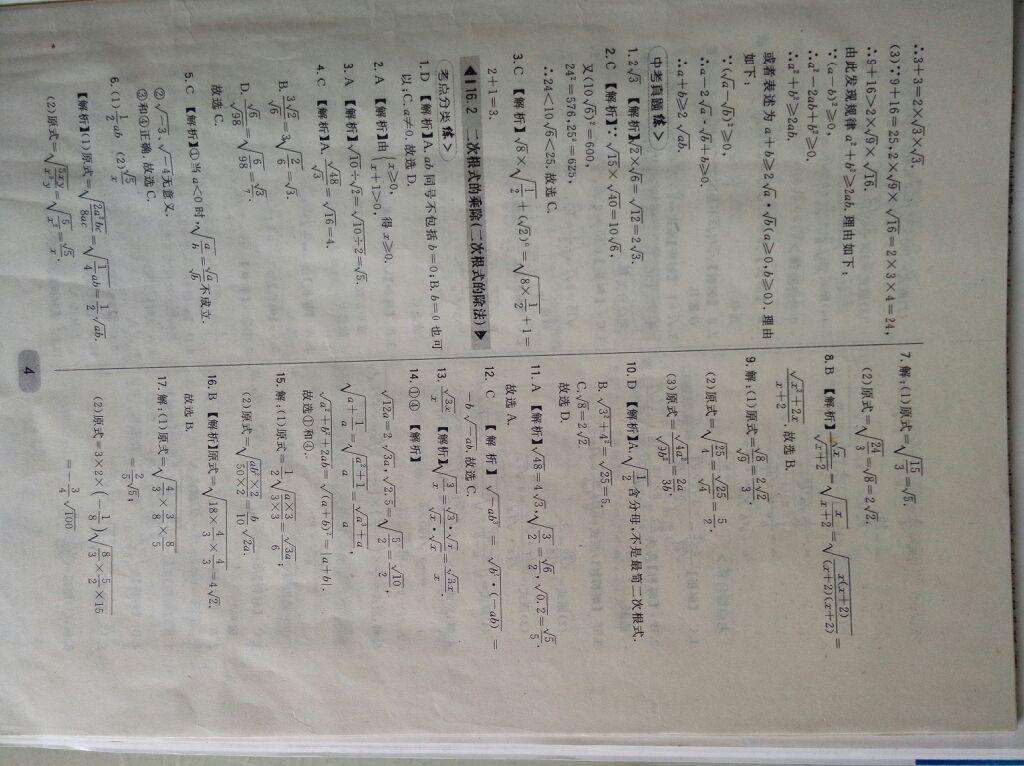 ∴3+3=2×√3×√3.
(3)∵9+16=25,2×√9×√16=2×3×4=24,
∴9+16>2×√9×√16.
由此发现规律 a²+b²≥2ab,理由如下:
∵(a-b)²≥0,
∴a²-2ab+b²≥0,
∴a²+b²≥2ab.
或者表述为 a+b≥2√a·√b(a≥0,b≥0).理由
如下:
∵(√a-√b)²≥0,
∴a-2√a·√b+b≥0,
∴a+b≥2√ab.
中考真题 练>
1. 2√3 【解析】√2×√6=√12=2√3.
2. C 【解析】∵√15×√40=10√6,
又(10√6)²=600,
24²=576,25²=625,
∴24<10√6<25.故选 C.
3. C 【解析】√8×√(1/2)+(√2)⁰=√(8×1/2)+1=
2+1=3.
◀16.2 二次根式的乘除(二次根式的除法)▶
考点分类 练>
1. D 【解析】A.ab 同号不包括 b=0;B.b=0 也可
以;C.a≥0.故选 D.
2. A 【解析】由{x≥0, x+1>0, 得 x≥0.
3. A 【解析】√10÷√2=√(10÷2)=√5.
4. C 【解析】A.√48/√3=√16=4.
B.3√2/√6=3√(2/6)=√3.
D.√6/√98=√(6/98)=√3/7.
故选 C.
5. C 【解析】①当 a<0 时,√(a/b)=√a/√b 不成立.
②√-3,√-4无意义.
③和④正确,故选 C.
6. (1)1/2√ab (2)√5/x
【解析】(1)原式=√(2a²bc/8ac)=√(1/4 ab)=1/2√ab.
(2)原式=√(5xy/x³y)=√(5/x²)=√5/x.
7. 解:(1)原式=√(15/3)=√5.
(2)原式=√(24/3)=√8=2√2.
8. B 【解析】√x/√(x+2)=√(x/(x+2))=√(x(x+2)/(x+2)(x+2))=
√(x²+2x)/(x+2).故选 B.
9. 解:(1)原式=√8/√9=2√2/3.
(2)原式=√(25/4)=√25/√4=5/2.
(3)原式=√4a²/√9b²=2a/3b.
10. D 【解析】A.√(1/2)含分母,不是最简二次根式.
B.√(3²+4²)=√25=5.
C.√8=2√2.
故选 D.
11. A 【解析】√48=4√3,√(3/2)=√6/2,√0.2=√5/5.
故选 A.
12. C 【解析】√-ab³=√b²·(-ab)=
-b√-ab.故选 C.
13. √3x/x 【解析】√(3/x)=√3·√x/√x·√x=√3x/x.
14. ①④ 【解析】
√12a=2√3a,√2.5=√(5/2)=√10/2,
√(a+1/a)=√((a²+1)/a)=√(a³+a)/a,
√(a²+b²+2ab)=√(a+b)²=|a+b|.
故选①和④.
15. 解:(1)原式=1/2√(a×3/3×3)=√3a/6;
(2)原式=√(ab²×2/50×2)=b/10√2a.
16. B 【解析】原式=√(18×4/3×4/3)=4√2.
故选 B.
17. 解:(1)原式=√(4/3×3/8×8/5)
=2/5√5;
(2)原式=3×2×(-1/8)√(8/3×5/2×15)
=-3/4√100
4